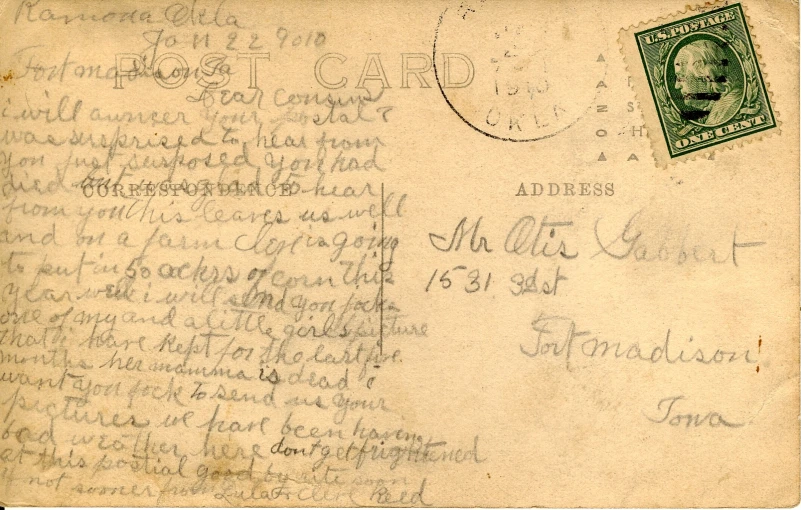 Ramona Okla
Jan 22 9010
Fort madison Ia
POST CARD
Dear cousin
i will awncer your postal &
was surprised to hear from
you just surposed you had
died but was glad to hear
CORRESPONDENCE
from you this leaves us well
and on a farm Cleve is going
to put in 50 ackers of corn this
year well i will send you focks
one of my and a little girls picture
that i have kept for the last five
months her mamma is dead i
want you fock to send us your
pictures we have been having
bad weather here dont get frightened
at this postial good by rite soon
if not sooner from Lula & Cleve Reed
1910
OKLA
U.S. POSTAGE
ONE CENT
ADDRESS
Mr Otis Gabbert
1531 3d st
Fort madison
Iowa